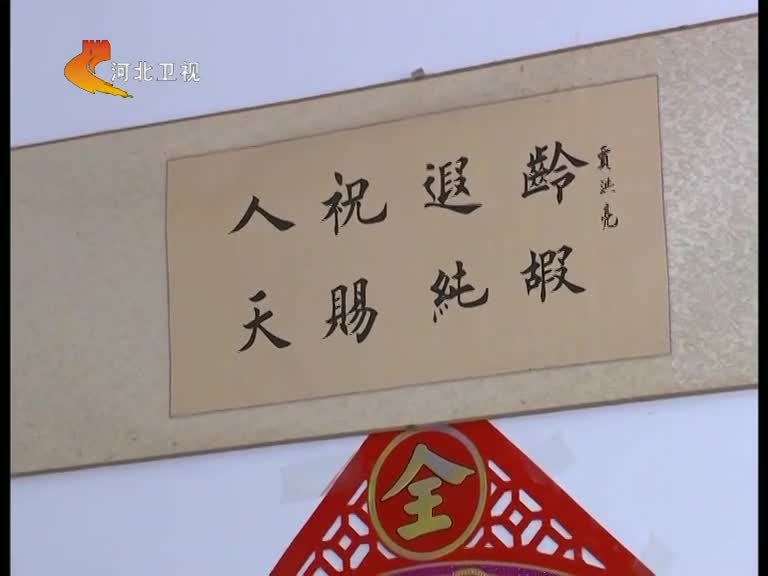 河北卫视
人祝遐齡
天賜純嘏
賈洪亮
全